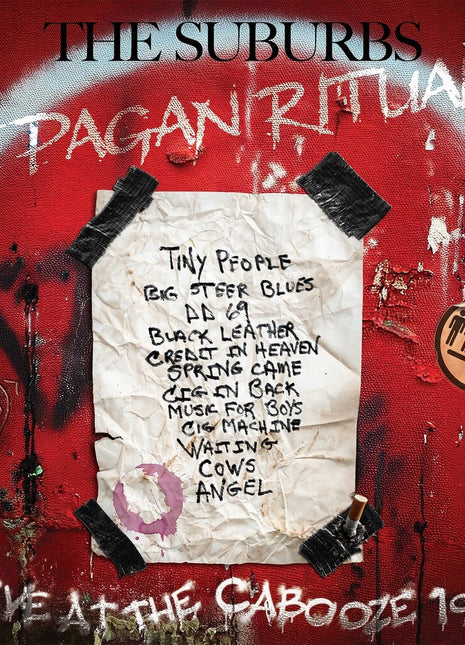 THE SUBURBS
PAGAN RITUA
TINY PEOPLE
BIG STEER BLUES
DD 69
BLACK LEATHER
CREDIT IN HEAVEN
SPRING CAME
CIG IN BACK
MUSIC FOR BOYS
CIG MACHINE
WAITING
COWS
ANGEL
VE AT THE CABOOZE 19